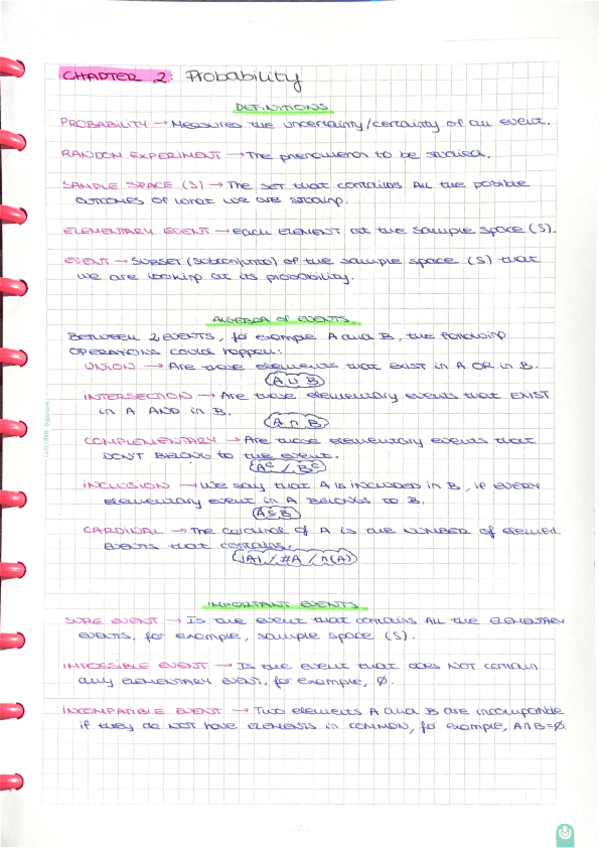 CHAPTER 2: Probability
DEFINITIONS
PROBABILITY → Measures the uncertainty/certainty of an event.
RANDOM EXPERIMENT → The phenomena to be studied.
SAMPLE SPACE (S) → The SET that contains ALL the posible
outcomes of what we are studing.
ELEMENTARY EVENT → Each ELEMENT at the sample space (S).
EVENT → SUBSET (subconjunto) of the sample space (S) that
we are looking at its probability.
ALGEBRA OF EVENTS
BETWEEN 2 EVENTS, for example A and B, the following
OPERATIONS could happen:
UNION → Are those elements that EXIST in A OR in B.
A ∪ B
INTERSECTION → Are those elementary events that EXIST
in A AND in B.
A ∩ B
COMPLEMENTARY → Are those elementary events that
DON'T BELONG to the event.
Aᶜ / Bᶜ
INCLUSION → We say that A is INCLUDED in B, if EVERY
elementary event in A BELONGS to B.
A ⊆ B
CARDINAL → The cardinal of A is the NUMBER of element.
EVENTS that contains.
|A| / #A / n(A)
IMPORTANT EVENTS
SURE EVENT → Is the event that contains ALL the ELEMENTARY
EVENTS, for example, sample space (S).
IMPOSSIBLE EVENT → Is the event that does NOT contain
any ELEMENTARY EVENT, for example, Ø.
INCOMPATIBLE EVENT → Two elements A and B are incompatible
if they do NOT have ELEMENTS in COMMON, for example, A∩B=Ø